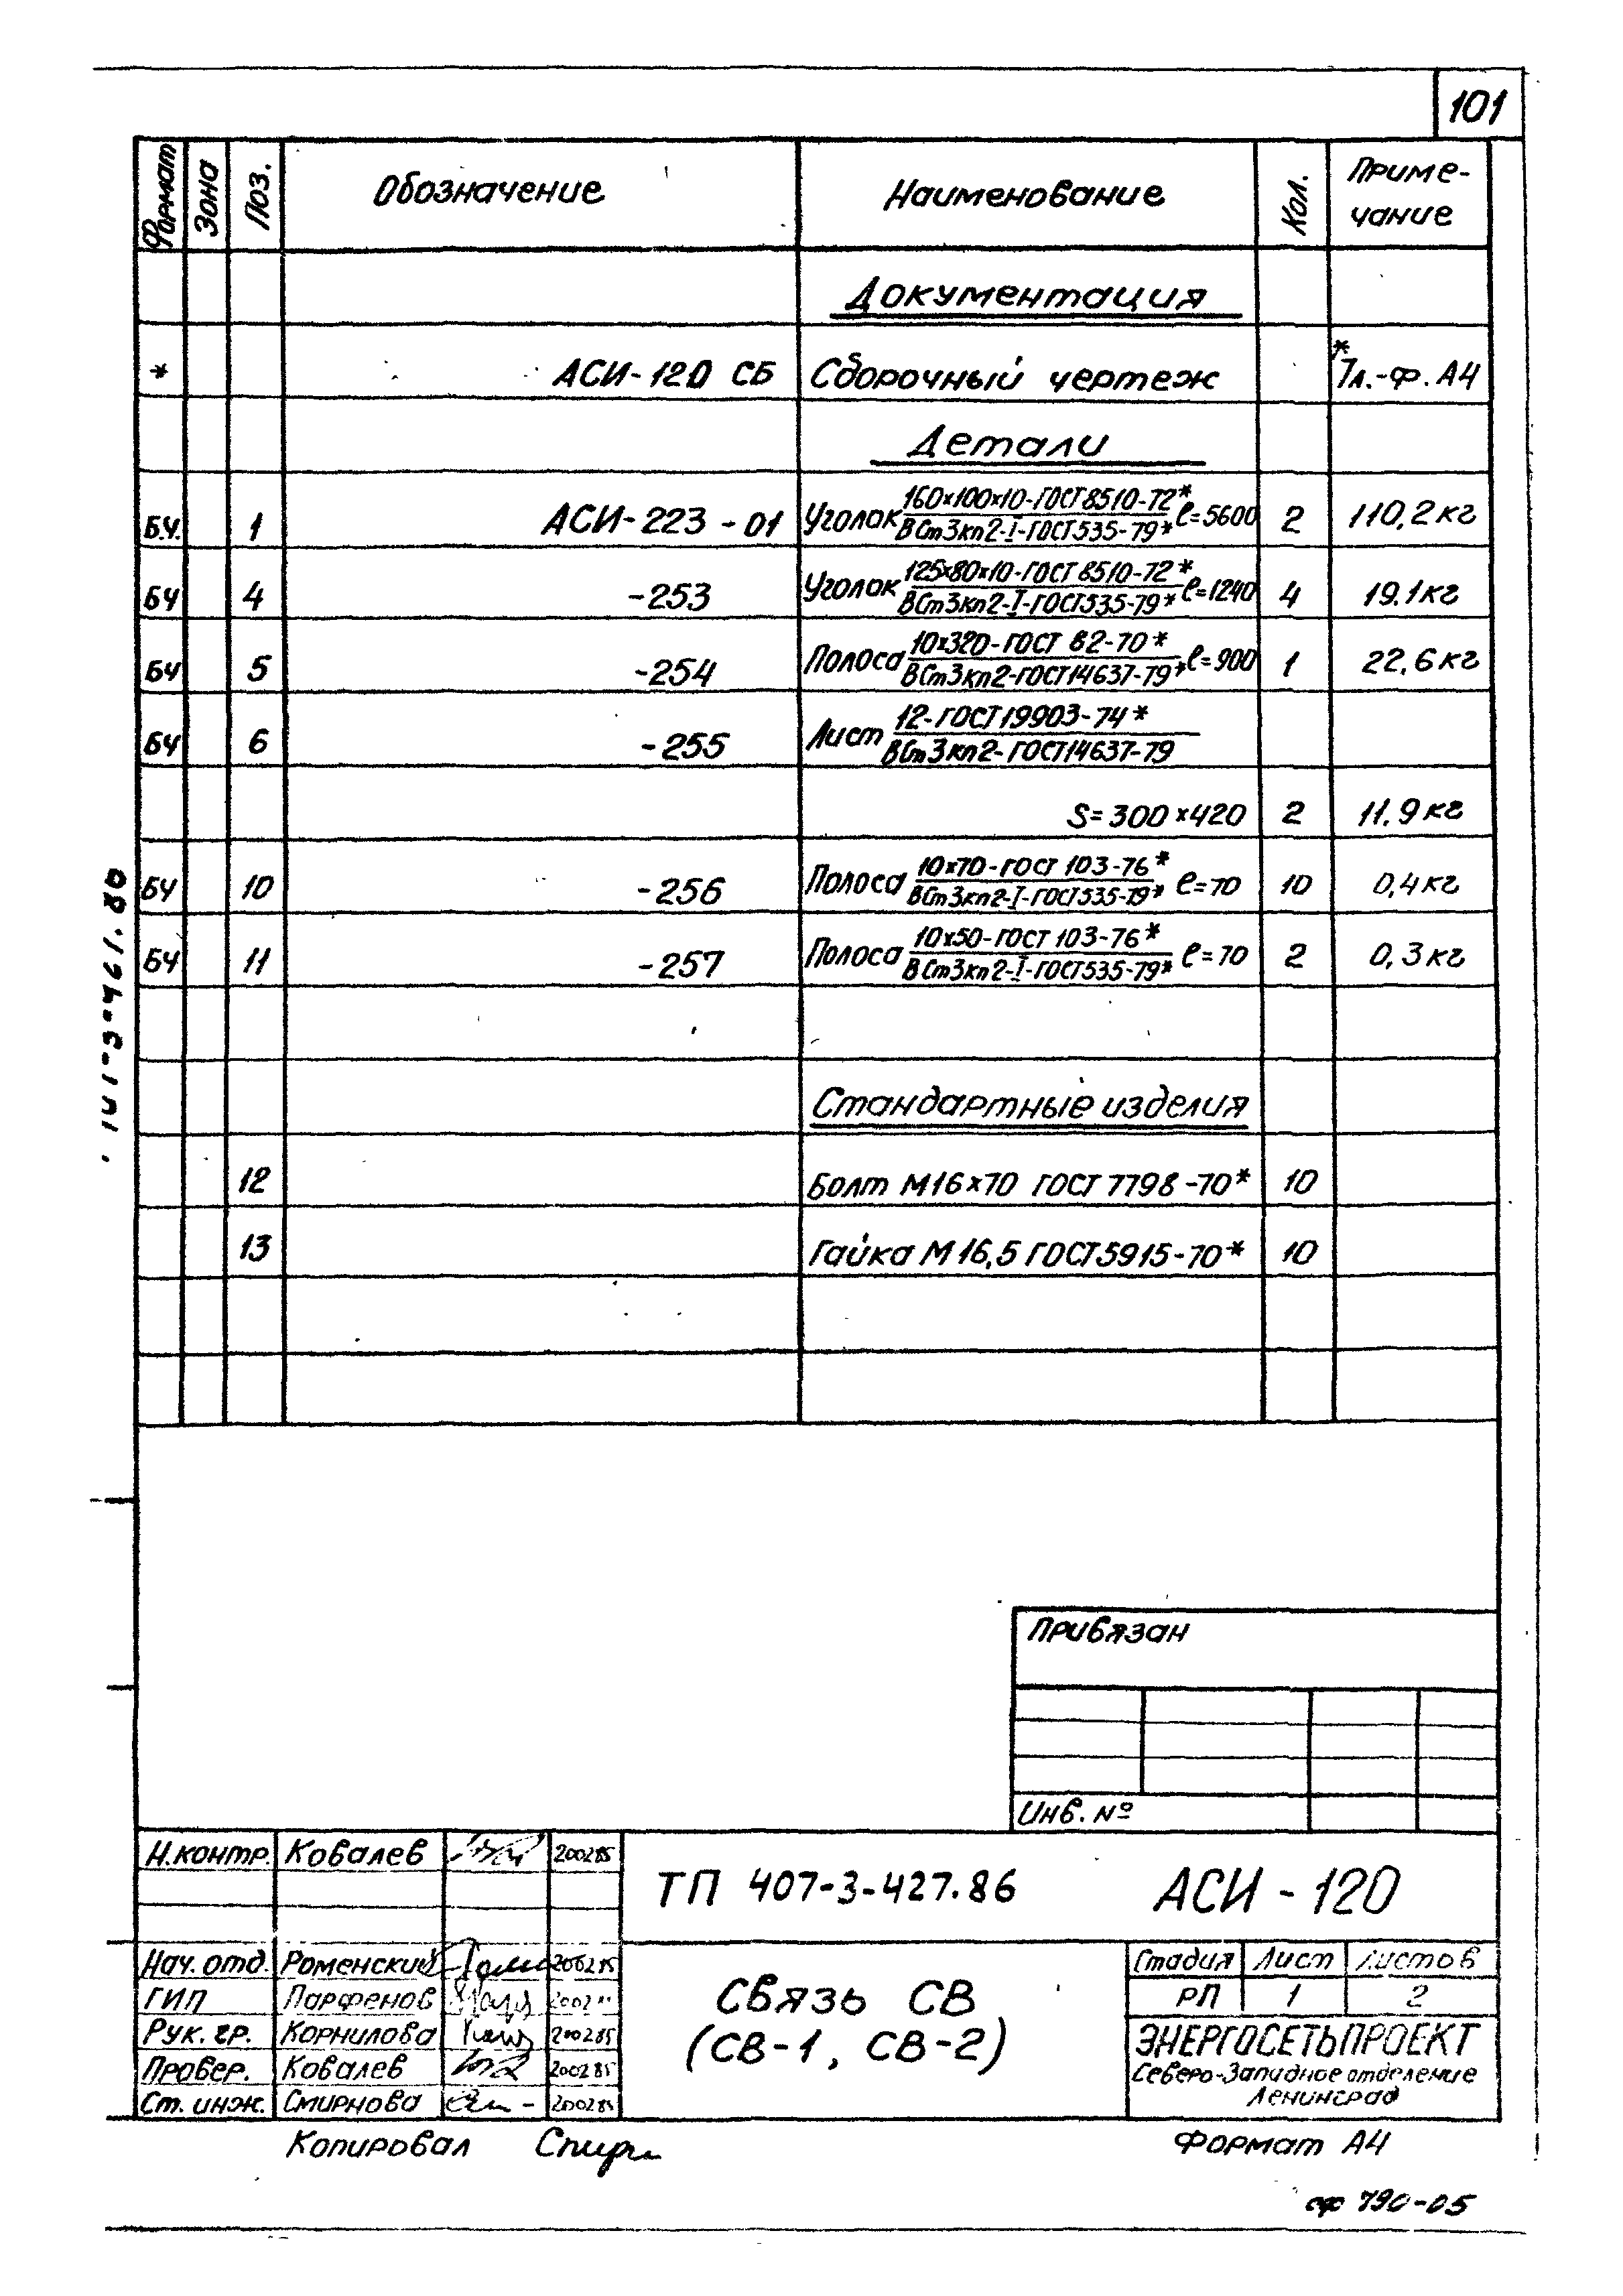 101
Формат Зона Поз. Обозначение Наименование Кол. Приме-
чание
Документация
* АСИ-120 СБ Сборочный чертеж *7л.-ф.А4
Детали
Б.Ч. 1 АСИ-223-01 Уголок 160х100х10-ГОСТ8510-72* / ВСт3кп2-I-ГОСТ535-79* ℓ=5600 2 110,2кг
БЧ 4 -253 Уголок 125х80х10-ГОСТ 8510-72* / ВСт3кп2-I-ГОСТ535-79* ℓ=1240 4 19.1кг
БЧ 5 -254 Полоса 10х320-ГОСТ 82-70* / ВСт3кп2-ГОСТ14637-79* ℓ=900 1 22,6кг
БЧ 6 -255 Лист 12-ГОСТ19903-74* / ВСт3кп2-ГОСТ14637-79
S=300х420 2 11.9кг
БЧ 10 -256 Полоса 10х70-ГОСТ 103-76* / ВСт3кп2-I-ГОСТ535-79* ℓ=70 10 0,4кг
БЧ 11 -257 Полоса 10х50-ГОСТ 103-76* / ВСт3кп2-I-ГОСТ535-79* ℓ=70 2 0,3кг
Стандартные изделия
12 Болт М16х70 ГОСТ 7798-70* 10
13 Гайка М16,5 ГОСТ5915-70* 10
Привязан
Инв. №
Н.контр. Ковалев 200285
ТП 407-3-427.86 АСИ-120
Нач. отд. Роменский 200285
ГИП Парфенов
Рук. гр. Корнилова 200285
Провер. Ковалев 200285
Ст. инж. Смирнова 200285
Связь СВ
(СВ-1, СВ-2)
Стадия Лист Листов
РП 1 2
ЭНЕРГОСЕТЬПРОЕКТ
Северо-Западное отделение
Ленинград
Копировал Формат А4
сф 790-05